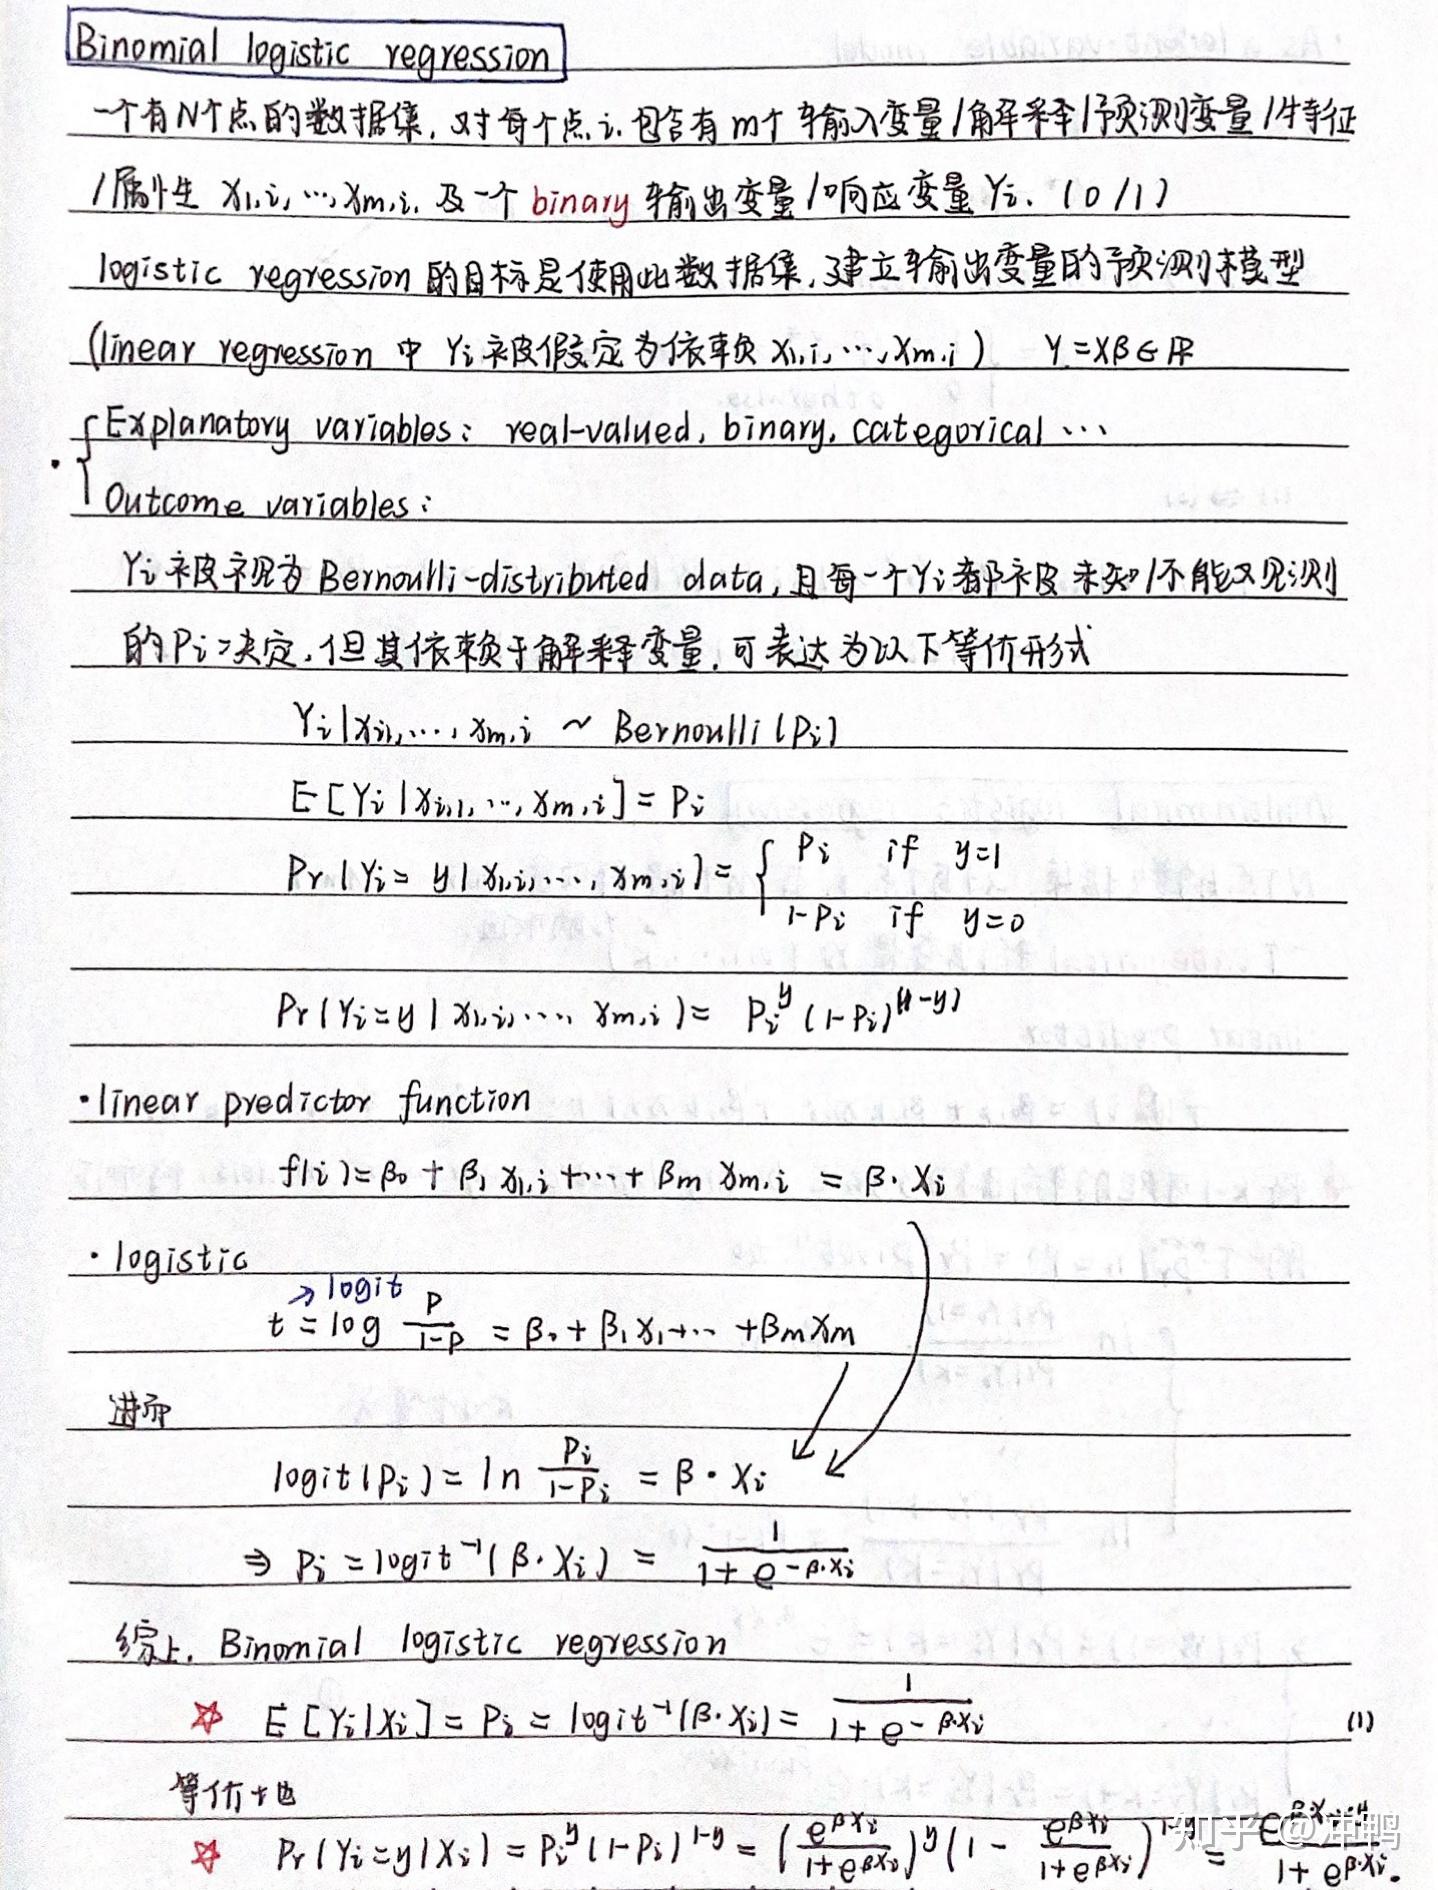 Binomial logistic regression
一个有N个点的数据集, 对每个点i. 包含有m个输入变量/解释/预测变量/特征
/属性 x₁,i, …, xm,i. 及一个 binary 输出变量/响应变量Yi. (0/1)
logistic regression 的目标是使用此数据集, 建立输出变量的预测模型
(linear regression 中 Yi 被假定为依赖 x₁,i, …, xm,i) Y = Xβ ∈ ℝ
· { Explanatory variables: real-valued, binary, categorical …
Outcome variables:
Yi 被视为 Bernoulli-distributed data, 且每一个Yi都被未知/不能观测
的Pi决定, 但其依赖于解释变量, 可表达为以下等价形式
Yi | x₁,i, …, xm,i ~ Bernoulli(Pi)
E[Yi | x₁,i, …, xm,i] = Pi
Pr(Yi = y | x₁,i, …, xm,i) = { Pi if y=1
1-Pi if y=0
Pr(Yi = y | x₁,i, …, xm,i) = Pi^y (1-Pi)^(1-y)
· linear predictor function
f(i) = β₀ + β₁ x₁,i + … + βm xm,i = β · Xi
· logistic
→ logit
t = log P/(1-P) = β₀ + β₁ x₁ + … + βm xm
进而
logit(Pi) = ln Pi/(1-Pi) = β · Xi
⇒ Pi = logit⁻¹(β · Xi) = 1/(1 + e^(-β·Xi))
综上, Binomial logistic regression
☆ E[Yi|Xi] = Pi = logit⁻¹(β · Xi) = 1/(1 + e^(-β·Xi)) (1)
等价地
☆ Pr(Yi = y | Xi) = Pi^y (1-Pi)^(1-y) = (e^(βXi)/(1+e^(βXi)))^y (1 - e^(βXi)/(1+e^(βXi)))^(1-y) = e^(β·Xi·y)/(1+e^(β·Xi)).
知乎 @洋鸭